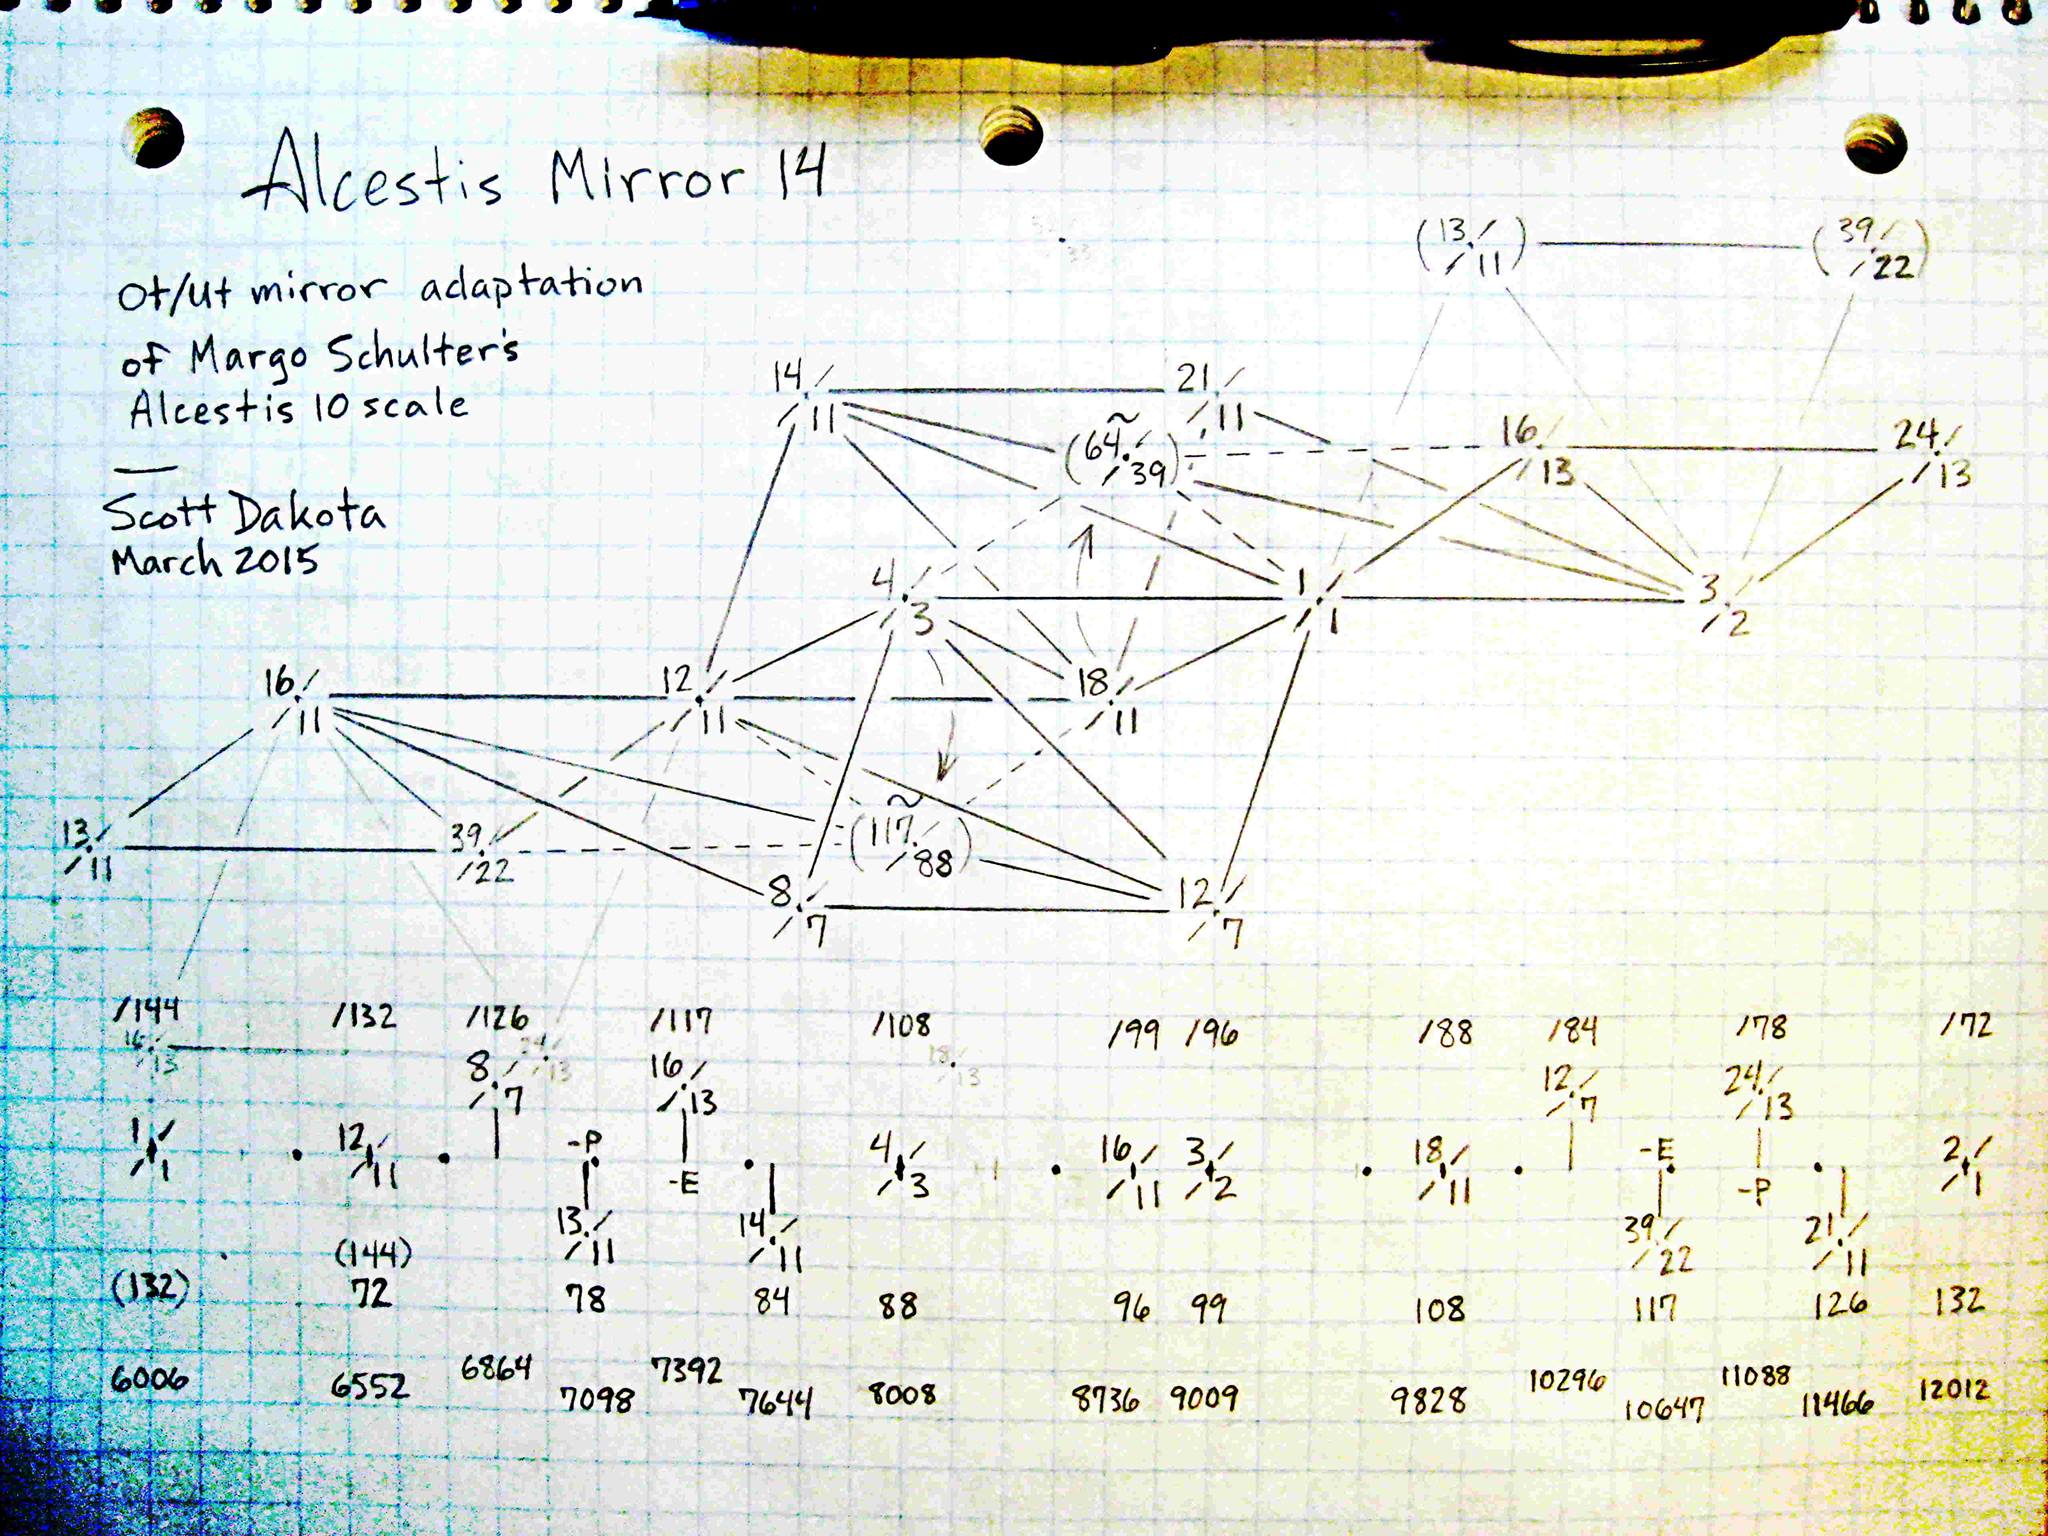 Alcestis Mirror 14
(13/11) (39/22)
Ot/Ut mirror adaptation
of Margo Schulter's
Alcestis 10 scale
—
Scott Dakota
March 2015
14/11 21/11
(~64/39) 16/13 24/13
4/3 1/1 3/2
16/11 12/11 18/11
13/11 39/22 (~117/88)
8/7 12/7
/144 /132 /126 /117 /108 /99 /96 /88 /84 /78 /72
16/13 24/13 18/13
8/7 16/13 12/7 24/13
1/1 12/11 -P -E 4/3 16/11 3/2 18/11 -E -P 2/1
13/11 14/11 39/22 21/11
(132) (144)
72 78 84 88 96 99 108 117 126 132
6006 6552 6864 7098 7392 7644 8008 8736 9009 9828 10296 10647 11088 11466 12012